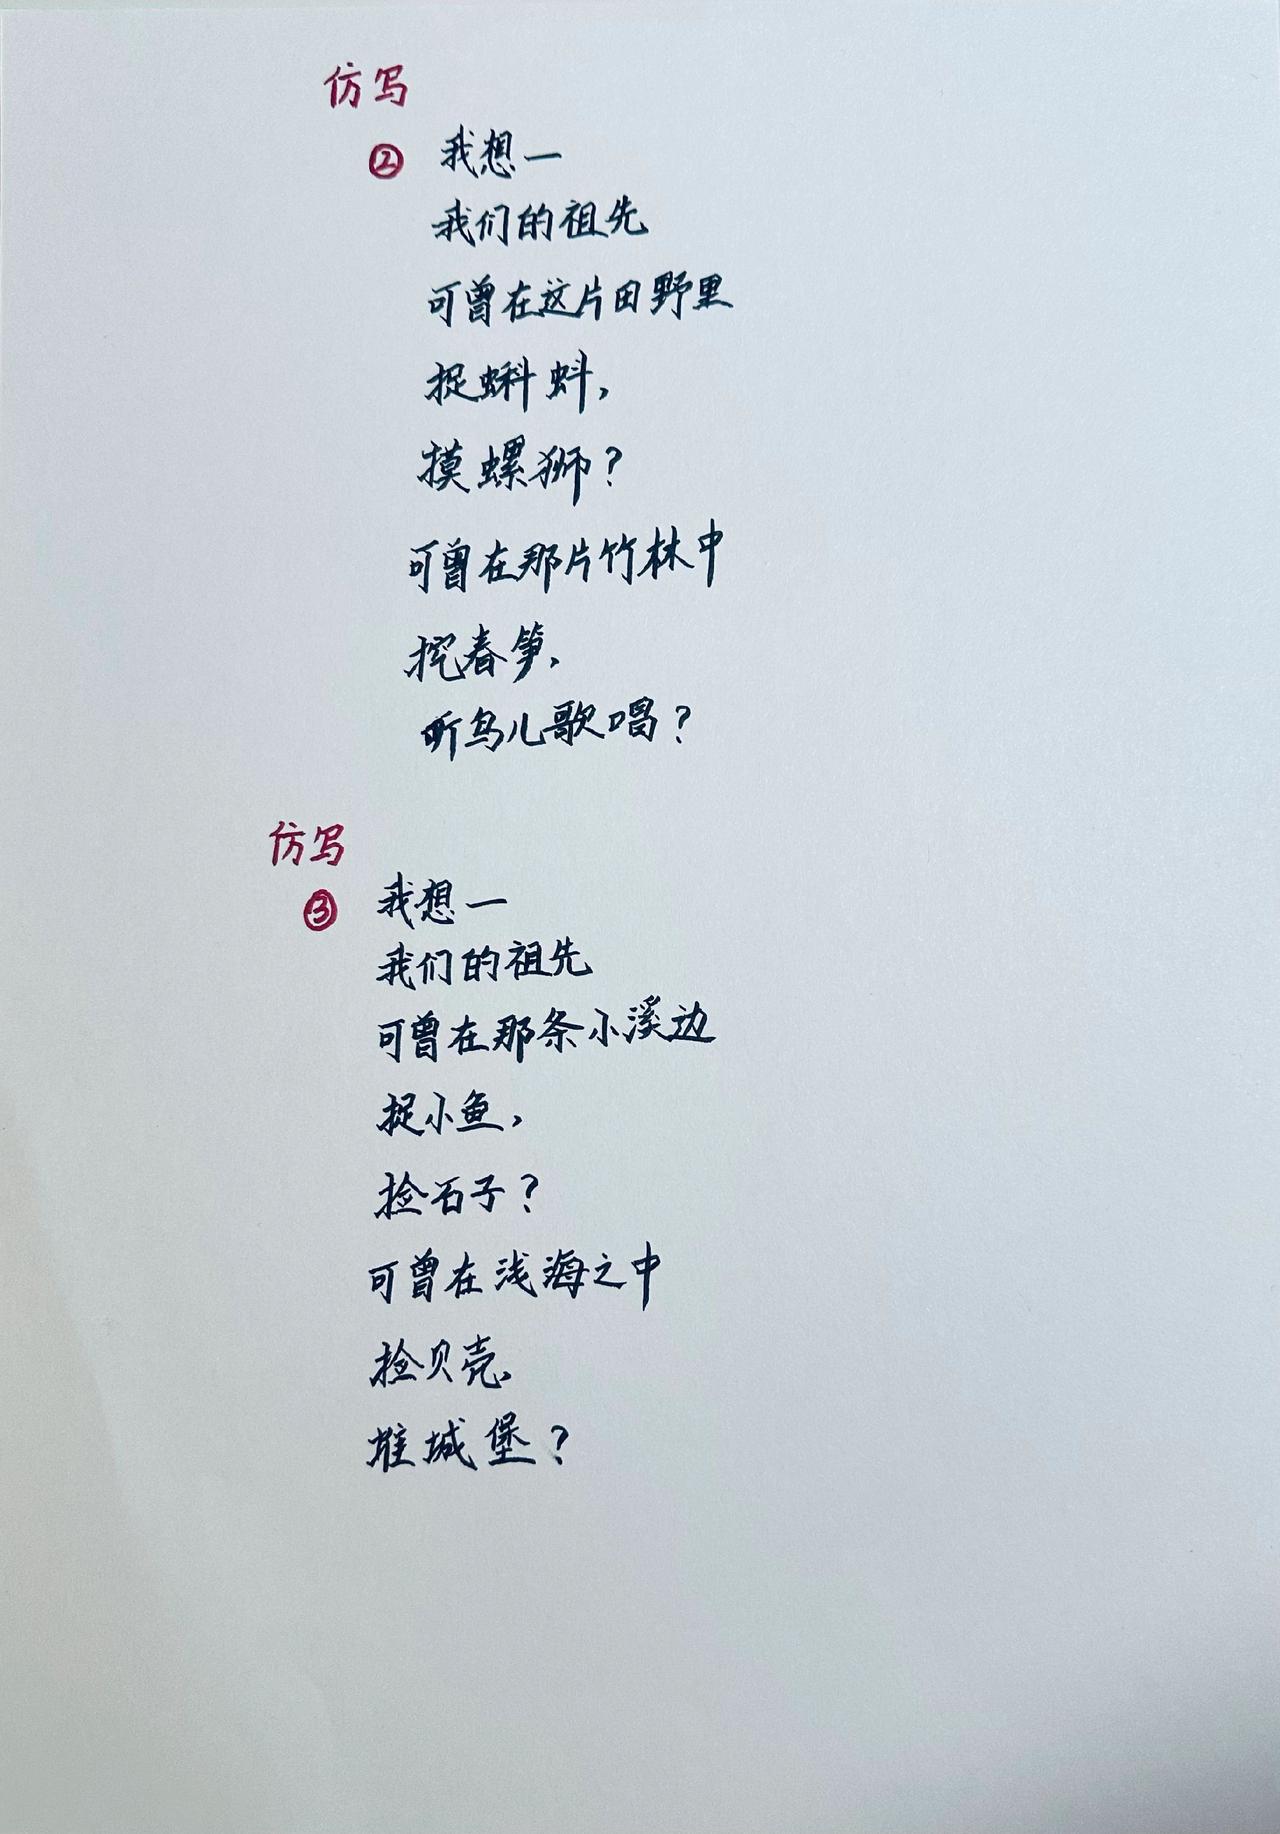 仿写
② 我想—
我们的祖先
可曾在这片田野里
捉蝌蚪,
摸螺狮?
可曾在那片竹林中
挖春笋、
听鸟儿歌唱?
仿写
③ 我想—
我们的祖先
可曾在那条小溪边
捉小鱼,
捡石子?
可曾在浅海之中
捡贝壳、
堆城堡?